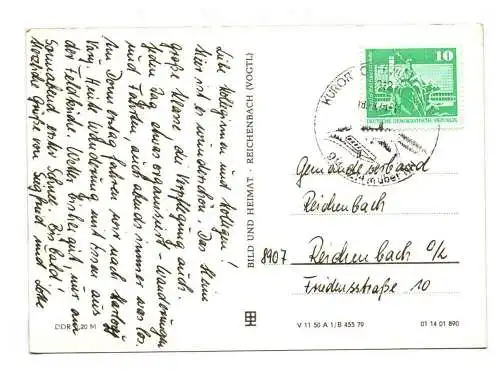 Liebe Kolleginnen und Kollegen!
hier ist es wunderschön. Das Heim
große Klasse die Verpflegung auch.
Jeden Tag etwas organisiert – Wanderungen
und Fahrten auch abends immer was los.
Am Donnerstag fuhren wir nach
Heute Wanderung mit Essen aus
der Feldküche. Wetter bisher gut nur am
Sonnabend erster Schnee. Bis bald!
Herzliche Grüße von Siegfried und
DDR 0,20 M
BILD UND HEIMAT · REICHENBACH (VOGTL)
KURORT
10
DEUTSCHE DEMOKRATISCHE REPUBLIK
m über
Gemeindeverband
Reichenbach
8907 Reichenbach O/L
Friedensstraße 10
V 11 50 A 1/B 455 79
01 14 01 890